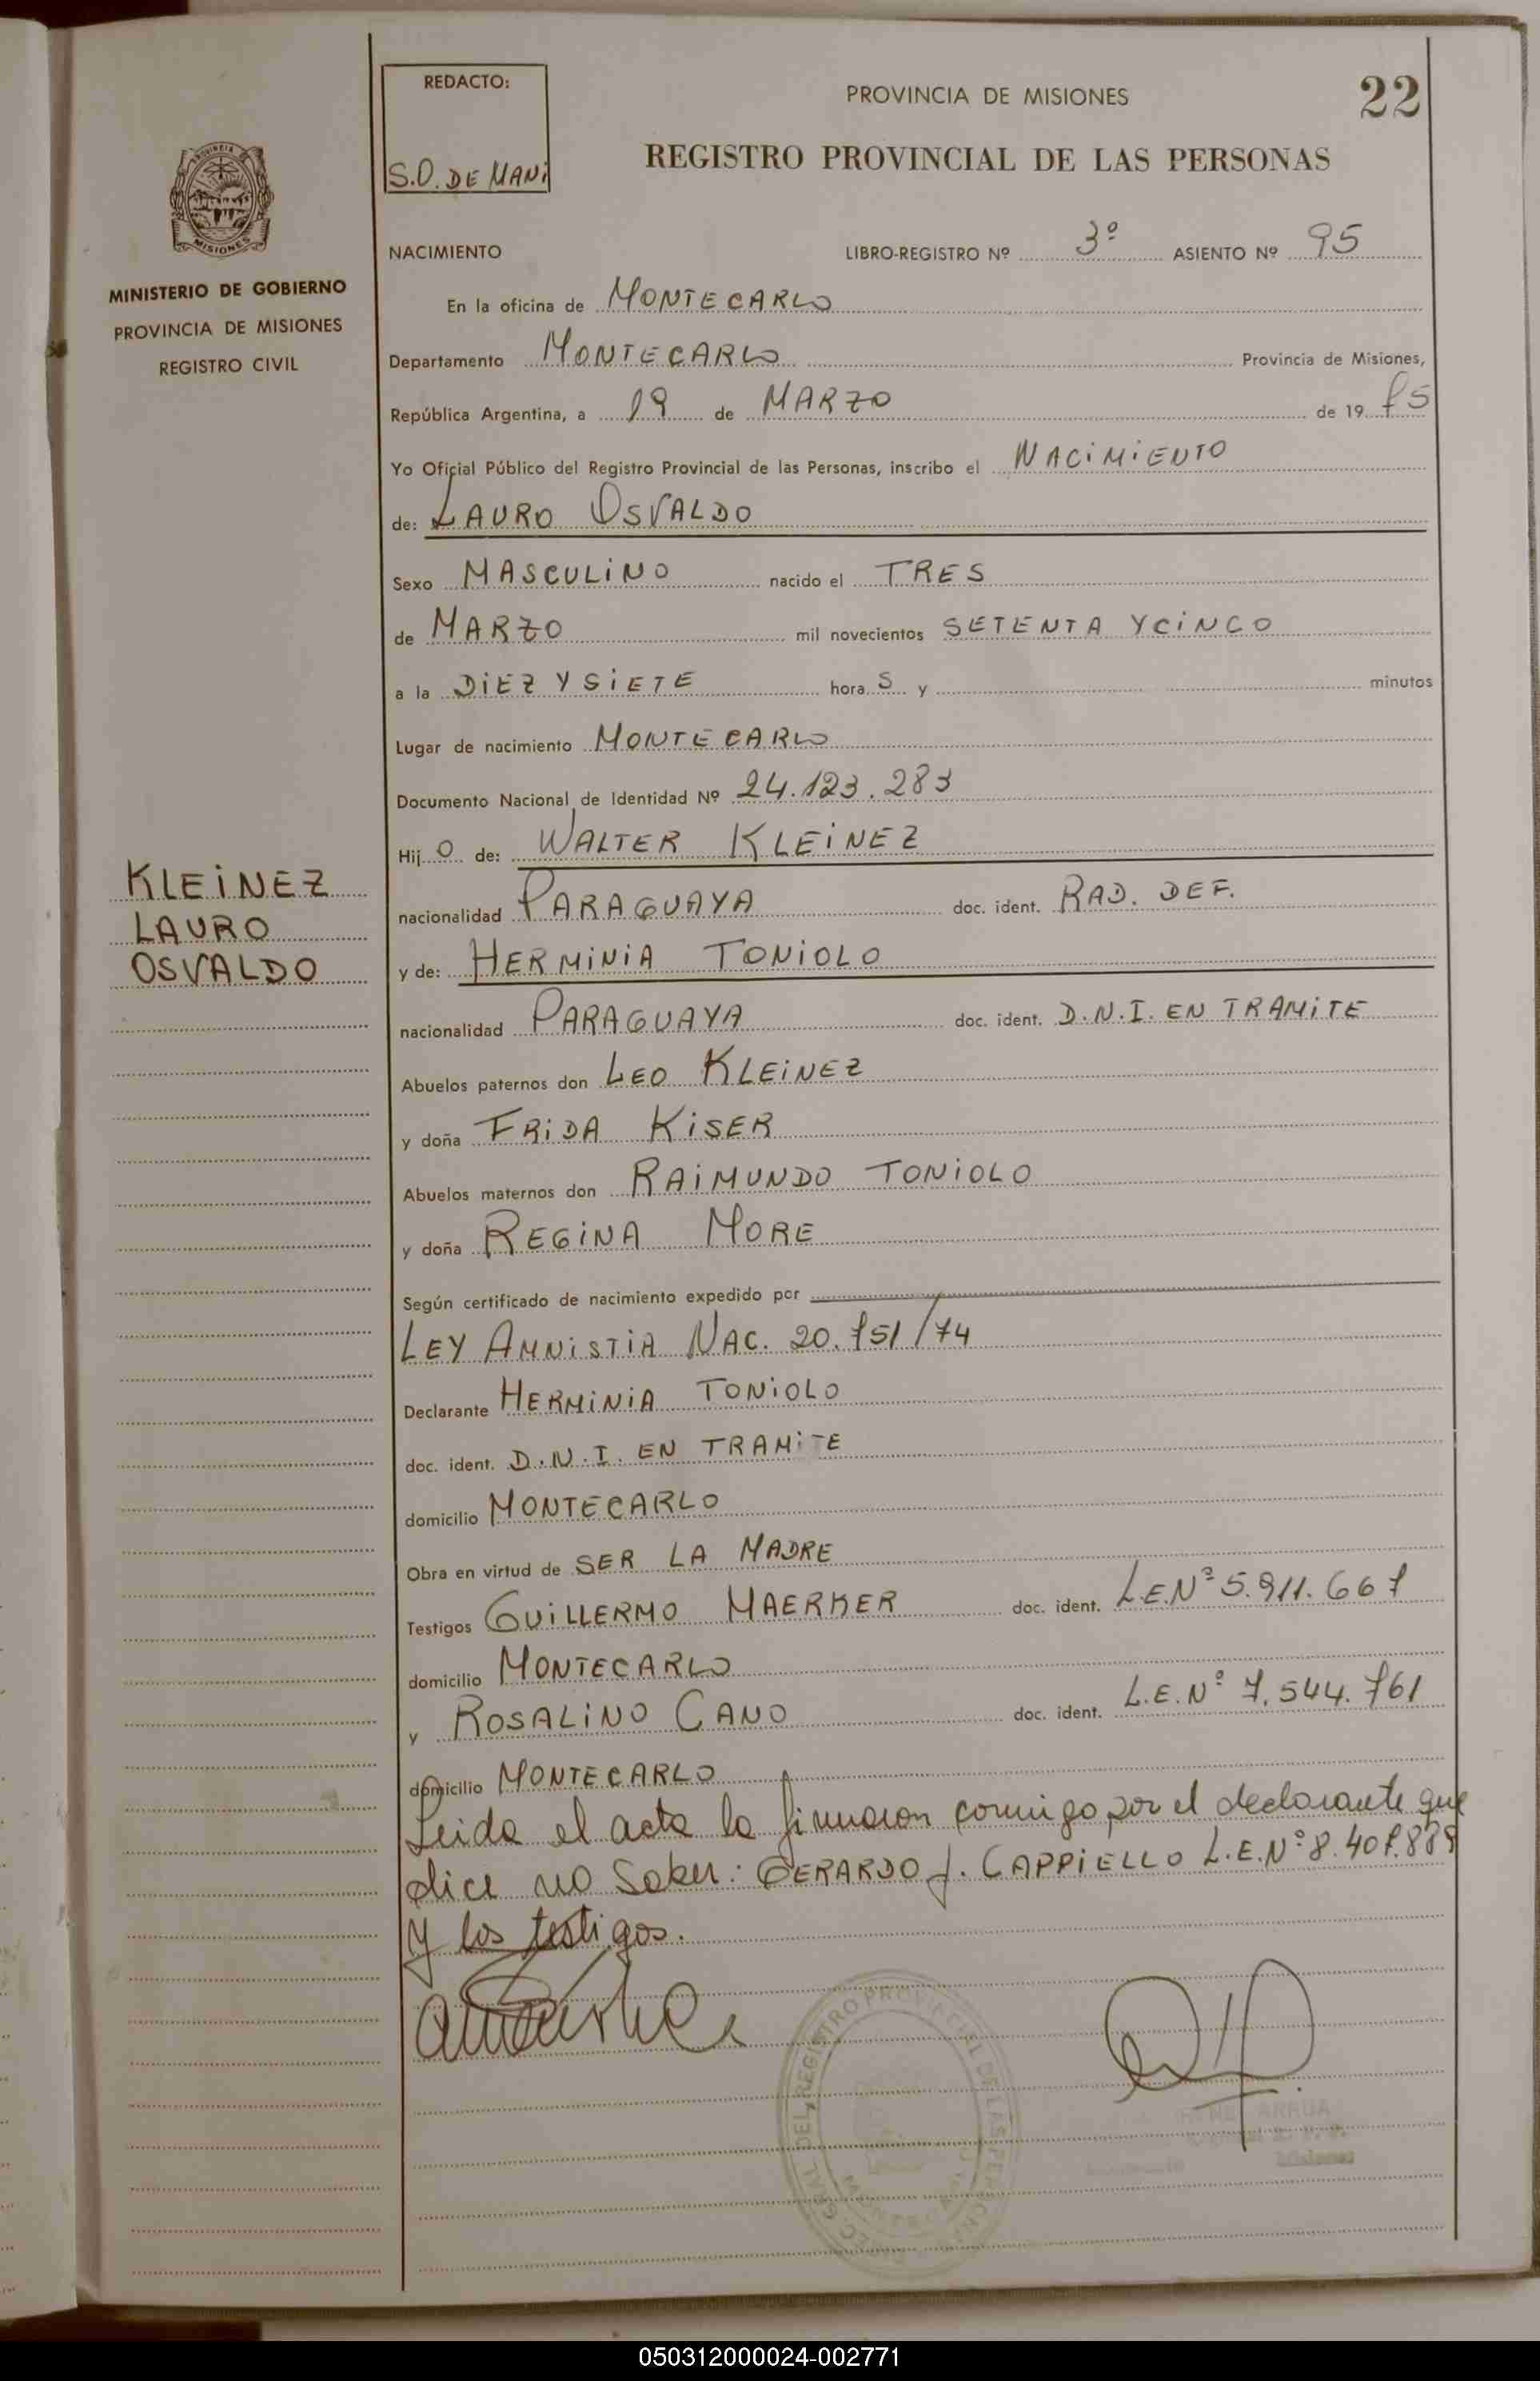 22
REDACTO:
S.O. DE MANI
PROVINCIA DE MISIONES
REGISTRO PROVINCIAL DE LAS PERSONAS
PROVINCIA DE
MISIONES
MINISTERIO DE GOBIERNO
PROVINCIA DE MISIONES
REGISTRO CIVIL
NACIMIENTO LIBRO-REGISTRO Nº 3º ASIENTO Nº 95
En la oficina de MONTECARLO
Departamento MONTECARLO Provincia de Misiones,
República Argentina, a 19 de MARZO de 19 75
Yo Oficial Público del Registro Provincial de las Personas, inscribo el NACIMIENTO
de: LAURO OSVALDO
Sexo MASCULINO nacido el TRES
de MARZO mil novecientos SETENTA Y CINCO
a la DIEZ Y SIETE hora S y minutos
Lugar de nacimiento MONTECARLO
Documento Nacional de Identidad Nº 24.123.283
Hij O de: WALTER KLEINEZ
KLEINEZ
LAURO
OSVALDO
nacionalidad PARAGUAYA doc. ident. RAD. DEF.
y de: HERMINIA TONIOLO
nacionalidad PARAGUAYA doc. ident. D.N.I. EN TRAMITE
Abuelos paternos don LEO KLEINEZ
y doña FRIDA KISER
Abuelos maternos don RAIMUNDO TONIOLO
y doña REGINA MORE
Según certificado de nacimiento expedido por
LEY AMNISTIA NAC. 20.751/74
Declarante HERMINIA TONIOLO
doc. ident. D.N.I. EN TRAMITE
domicilio MONTECARLO
Obra en virtud de SER LA MADRE
Testigos GUILLERMO MAERKER doc. ident. L.E.Nº 5.911.667
domicilio MONTECARLO
y ROSALINO CANO doc. ident. L.E.Nº 7.544.761
domicilio MONTECARLO
Leida el acta la firmaron conmigo, por el declarante que
dice no Saber: GERARDO J. CAPPIELLO L.E.Nº 8.407.889
Y los testigos.
DEL REGISTRO PROVINCIAL DE LAS PERSONAS
ARRUA
Misiones
050312000024-002771